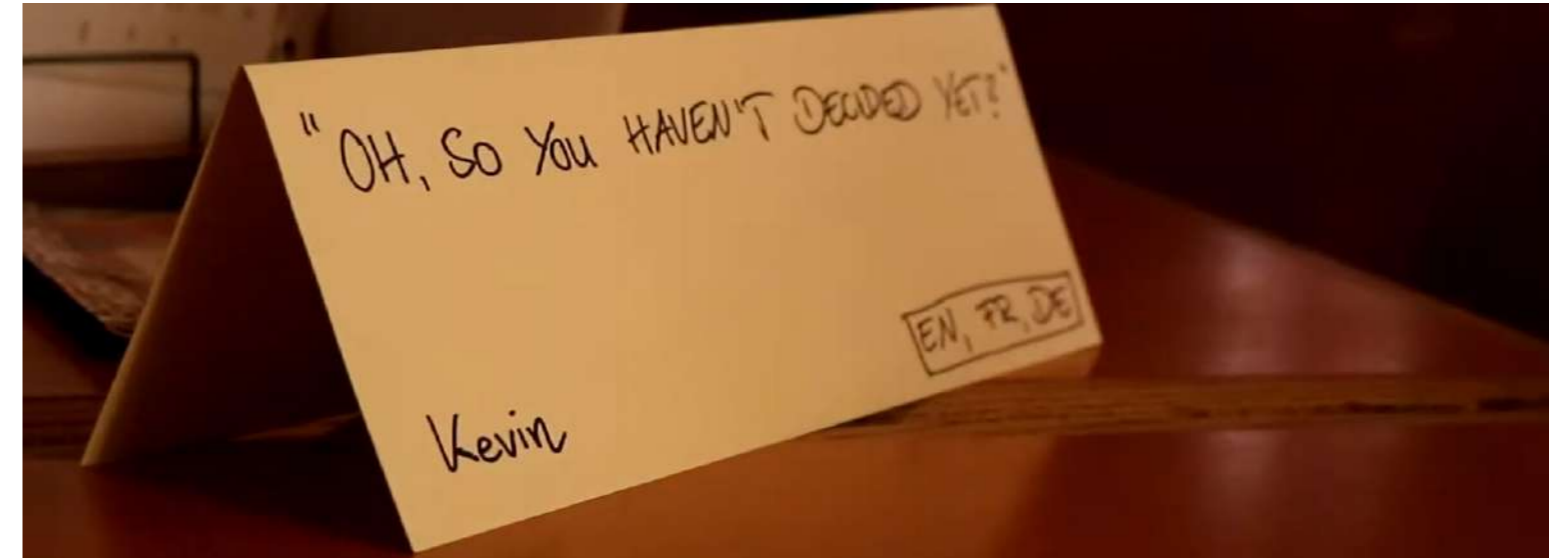 "OH, SO YOU HAVEN'T DECIDED YET?"
EN, FR, DE
Kevin